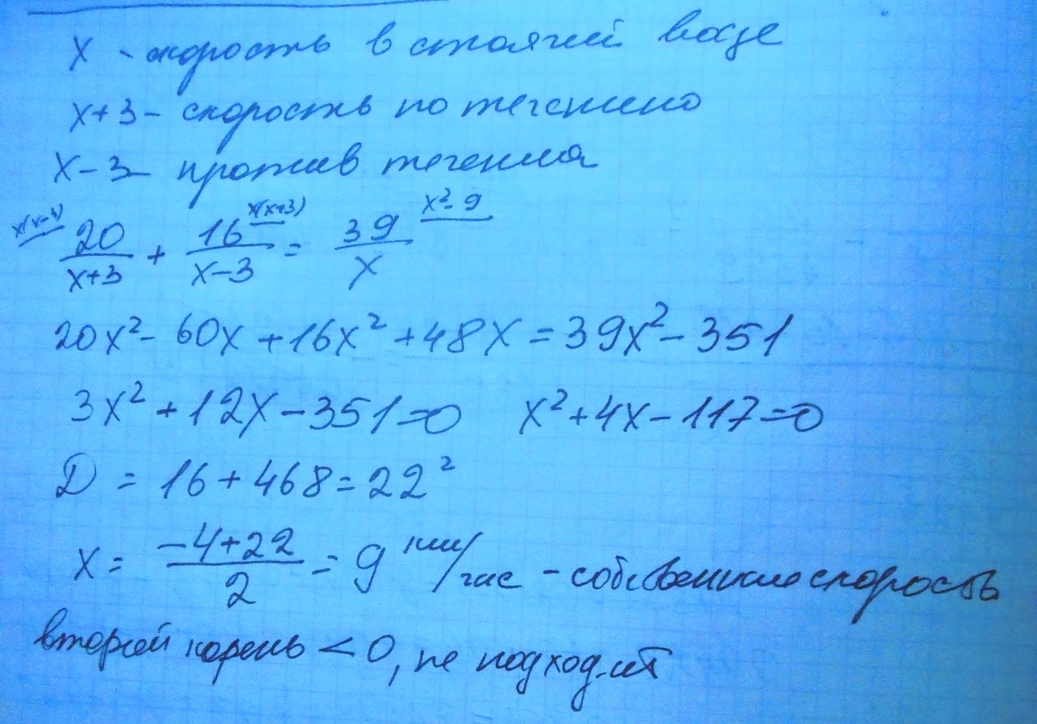 x - скорость в стоячей воде
x+3 - скорость по течению
x-3 - против течения
x(x-3) 20/(x+3) + 16/(x-3) x(x+3) = 39/x x²-9
20x² - 60x + 16x² + 48x = 39x² - 351
3x² + 12x - 351 = 0 x² + 4x - 117 = 0
D = 16 + 468 = 22²
x = (-4+22)/2 = 9 км/час - собственная скорость
второй корень < 0, не подходит